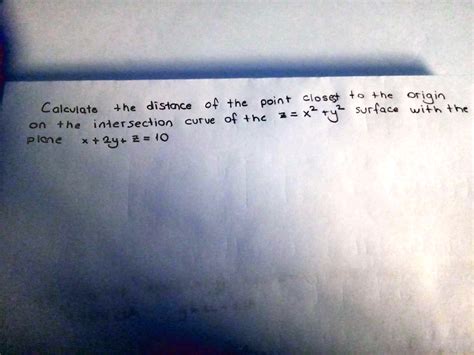 Calculate the distance of the point closest to the origin
on the intersection curve of the z = x² + y² surface with the
plane x + 2y + z = 10